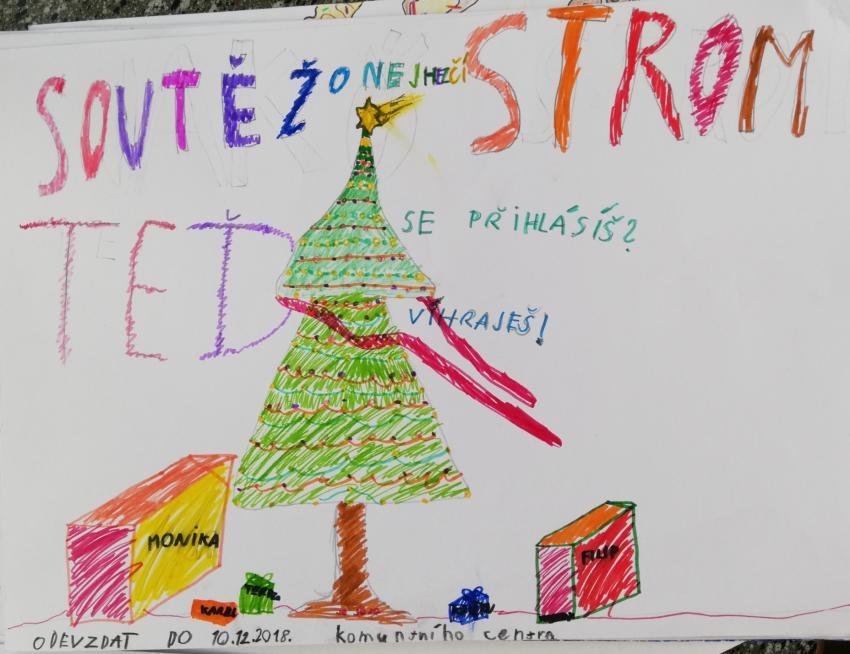 SOUTĚŽ O NEJHEZČÍ STROM
TEĎ SE PŘIHLÁSÍŠ?
VÍHRAJEŠ!
MONIKA
FILIP
KAREL
ODEVZDAT DO 10.12.2018. komuntního centra